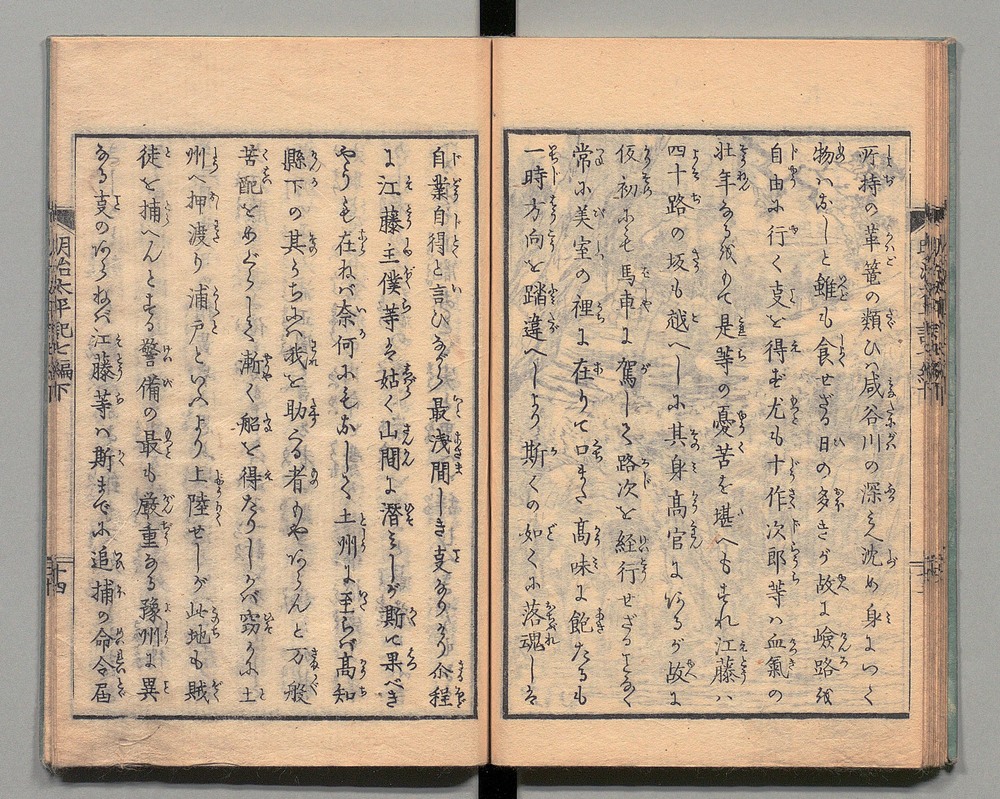 所持の革籠の類ひハ咸谷川の深みへ沈め身につく
物ハなしと雖も食せざる日の多きが故に嶮路を
自由に行く事を得ず尤も十作次郎等ハ血氣の
壮年なるをもて是等の憂苦を堪へもすれ江藤ハ
四十路の坂も越へしに其身高官にあるが故に
仮初にも馬車に駕して路次を経行せざることなく
常に美室の裡に在りて口また高味に飽たるも
一時方向を踏違へしより斯くの如くに落魂しは
自業自得と言ひながら最浅間しき事なりかり
に江藤主僕等は姑く山間に潜みしが斯て果べき
やうも在ねバ奈何にもなして土州に至らバ高知
縣下の其うちにハ我を助くる者もやあらんと万般
苦配をめぐらして漸く船を得たりしかバ窃かに土
州へ押渡り浦戸といへるより上陸せしが此地も賊
徒を捕へんとする警備の最も厳重なる豫州に異
なる事のあらねバ江藤等ハ斯までに追捕の命令届
明治太平記七編下
十四